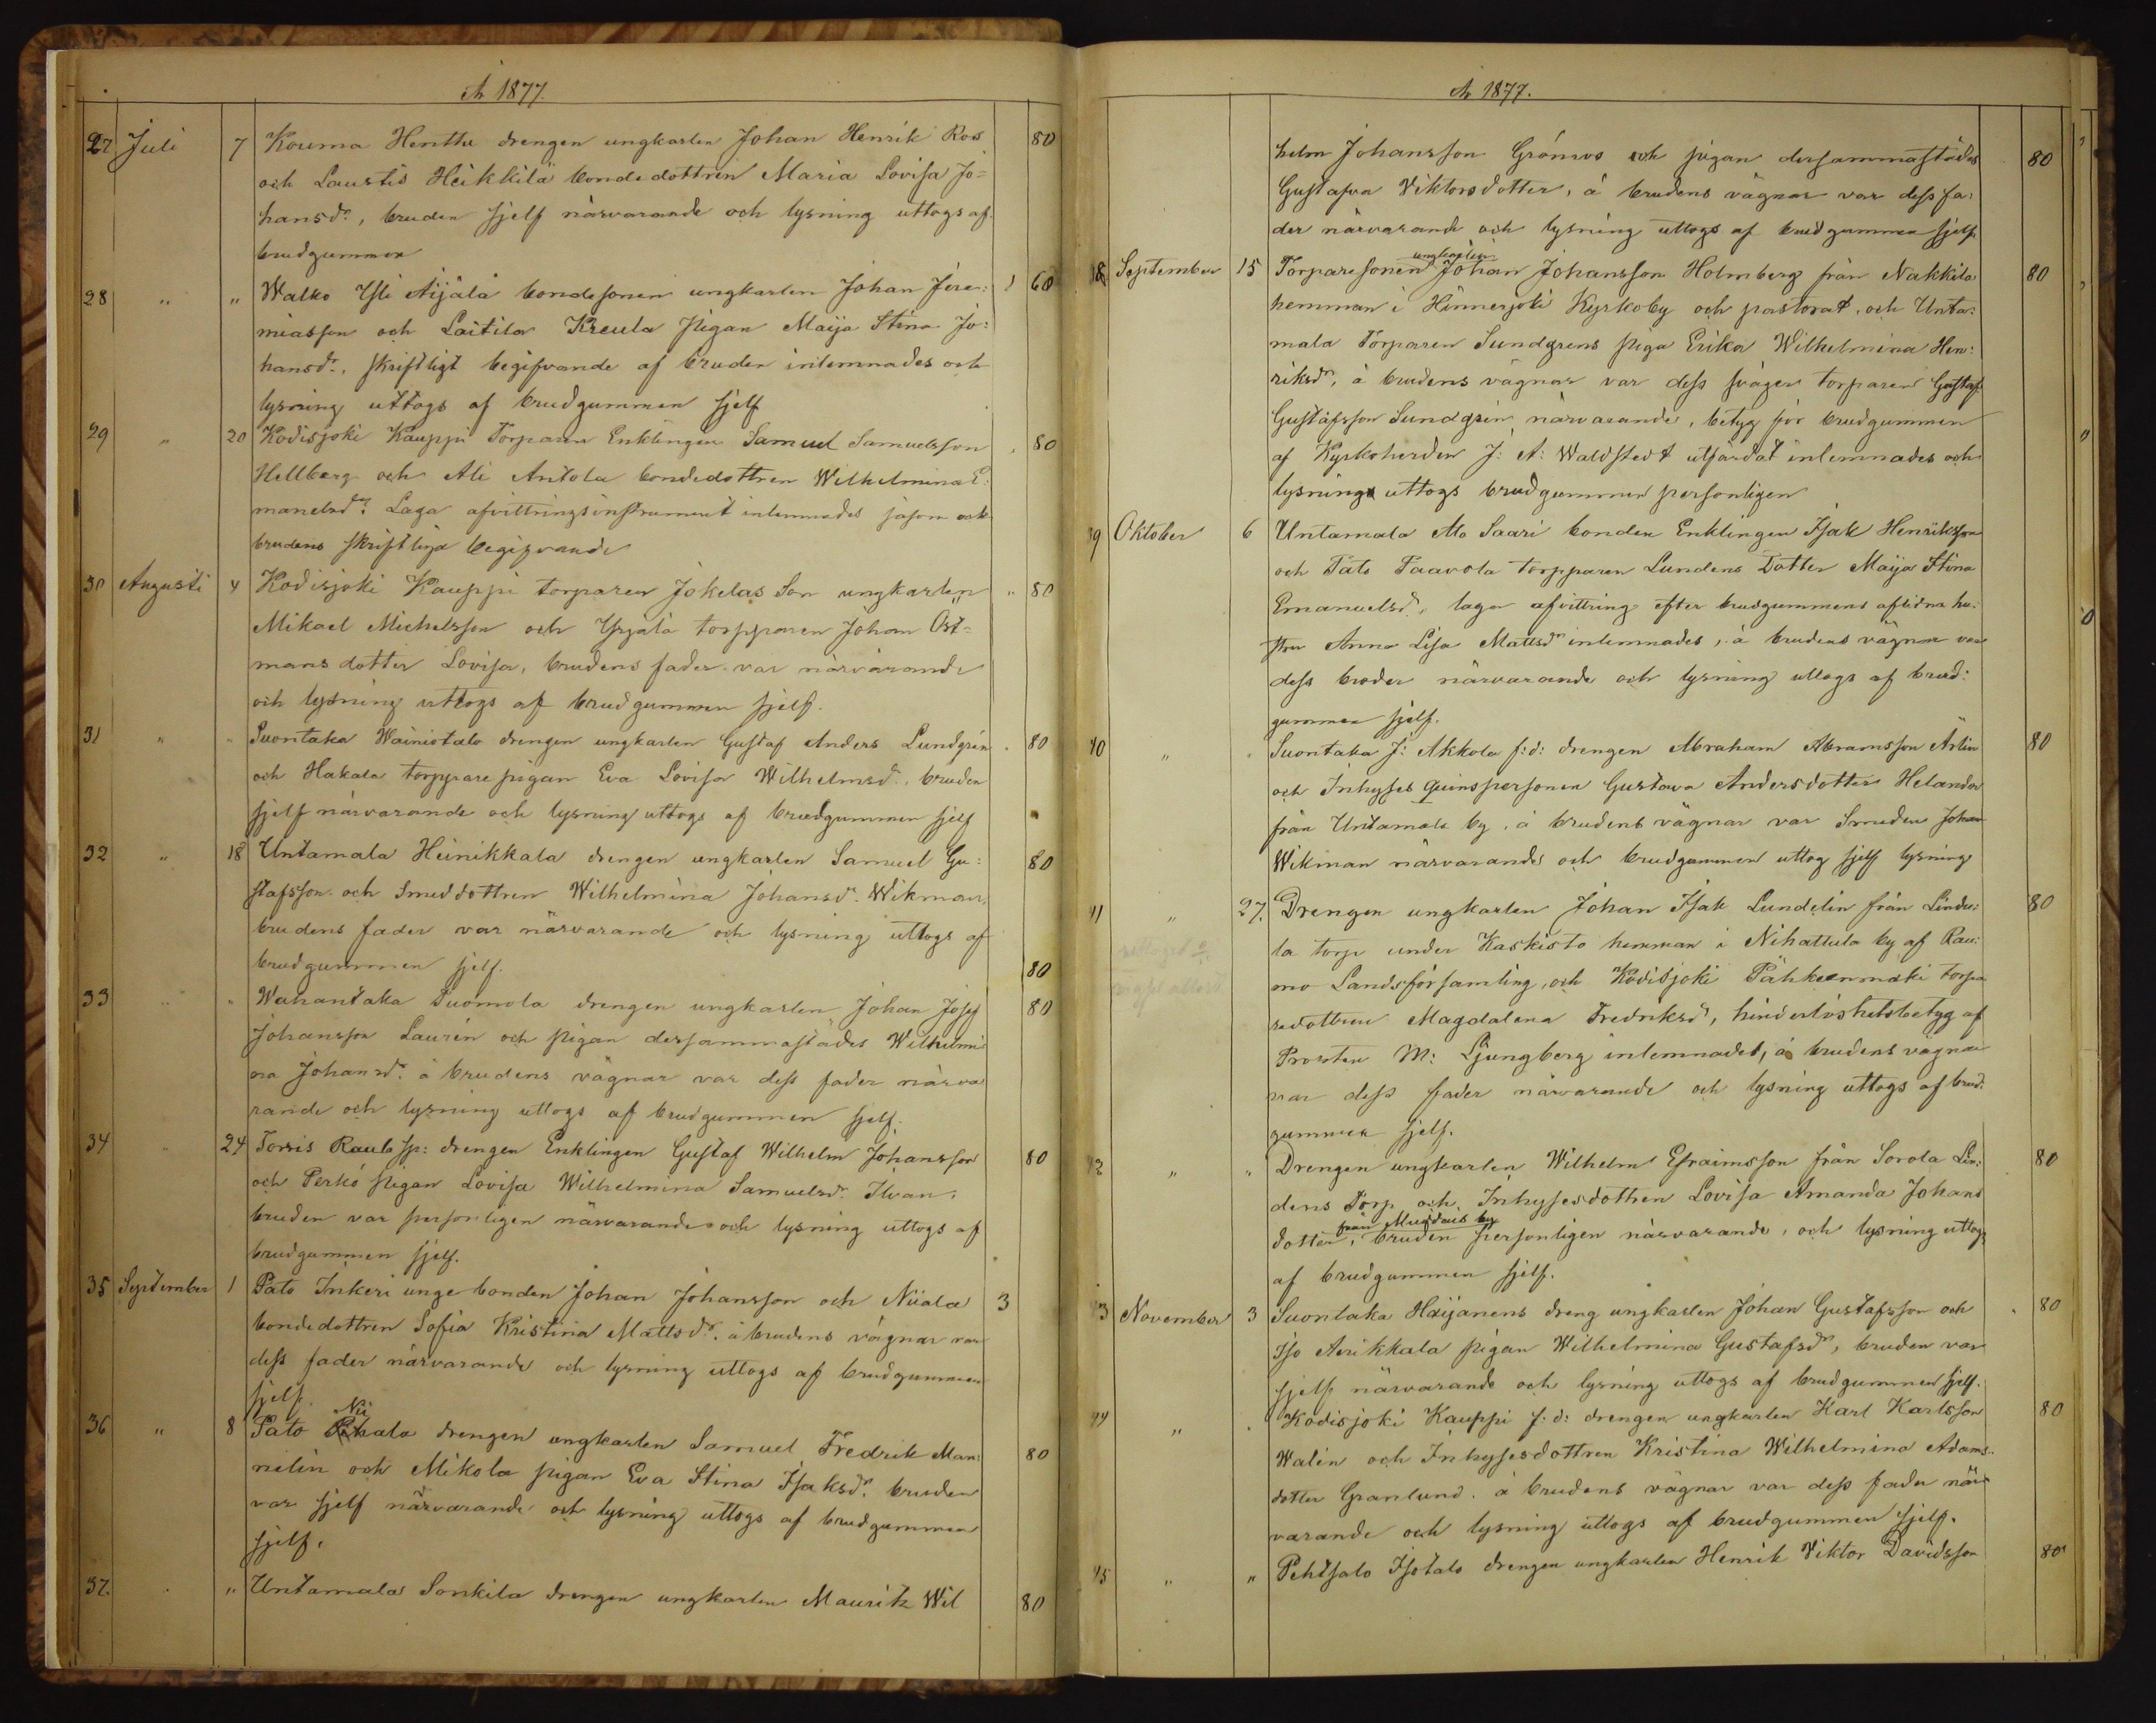 År 1877.
27 Juli 7 Kouma Henttu drengen ungkarlen Johan Henrik Ros 80
och Laustis Heikkilä bondedottren Maria Lovisa Jo=
hansdr, bruden sjelf närvarande och lysning uttogs af
brudgummen
28 " " Walko Yli Äijälä bondesonen ungkarlen Johan Jere: 1 60
miasson och Laitila Kreula pigan Maija Stina Jo:
hansdr, skriftligt begifvande af bruden inlemnades och
lysning uttogs af brudgummen sjelf
29 " 20 Kodisjoki Kauppi Torparen Enklingen Samuel Samuelsson 80
Hellberg och Ali Antola bondedottren Wilhelmina E:
manelsdr. Laga afvittringsinstrument inlemnades såsom ock
brudens skriftliga begifvande
30 Augusti 4 Kodisjoki Kauppi torparen Jokelas Son ungkarlen " 80
Mikael Michelsson och Ypyälä torpparen Johan Öst=
mans dotter Lovisa, brudens fader var närvarande
och lysning uttogs af brudgummen sjelf.
31 " " Suontaka Wainiotalo drengen ungkarlen Gustaf Anders Lundgrén 80
och Hakala torppare pigan Eva Lovisa Wilhelmsdr. bruden
sjelf närvarande och lysning uttogs af brudgummen sjelf
32 " 18 Untamala Heinikkala drengen ungkarlen Samuel Gu: 80
stafsson och Smeddottren Wilhelmina Johansdr. Wikman,
brudens fader var närvarande och lysning uttogs af
brudgummen sjelf. 80
33 " " Wahantaka Tuomola drengen ungkarlen Johan Josef 80
Johansson Laurén och pigan dersammastädes Wilhelmi
na Johansdr. å brudens vägnar var dess fader närva
rande och lysning uttogs af brudgummen sjelf.
34 24 Torris Raula sp: drengen Enklingen Gustaf Wilhelm Johansson 80
och Perkö pigan Lovisa Wilhelmina Samuelsdr. Ilvan,
bruden var personligen närvarande och lysning uttogs af
brudgummen sjelf.
35 September 1 Pato Inkeri unge bonden Johan Johansson och Niiala 3
bondedottren Sofia Kristina Mattsdr. å brudens vägnar var
dess fader närvarande och lysning uttogs af brudgummen
sjelf.
Nii
36 " 8 Pato ala drengen ungkarlen Samuel Fredrik Man: 80
nelin och Mikola pigan Eva Stina Isaksdr. bruden
var sjelf närvarande och lysning uttogs af brudgummen
sjelf.
37. " Untamala Sonkila drengen ungkarlen Mauritz Wil 80
År 1877.
helm Johansson Grönroos och pigan dersammastädes 80
Gustafva Viktorsdotter, å brudens vägnar var dess fa:
der närvarande och lysning uttogs af brudgummen sjelf.
ungkarlen
38 September 15 Torparesonen Johan Johansson Holmberg från Nakkila 80
hemman i Hinnerjoki Kyrkoby och pastorat, och Unta:
mala Torparen Sundgrens piga Erika Wilhelmina Hen:
riksdr, å brudens vägnar var dess svåger torparen Gustaf
Gustafsson Sundgrén närvarande, betyg för brudgummen
af Kyrkoherden J: A: Waldstedt utfärdat inlemnades och
lysning uttogs brudgummen personligen
39 Oktober 6 Untamala Ala Saari bonden Enklingen Isak Henriksson
och Pato Paavola torpparen Lundens Dotter Maija Stina
Emanuelsdr, laga afvittring efter brudgummens aflidna hu:
stru Anna Lisa Mattsdr inlemnades, å brudens vägnar var
dess broder närvarande och lysning uttogs af brud:
gummen sjelf.
40 " " Suontaka J: Akkola f:d: drengen Abraham Abramsson Ärlin 80
och Inhyses quinspersonen Gustava Andersdotter Helander
från Untamala by, å brudens vägnar var Smeden Johan
Wikman närvarandes och brudgummen uttog sjelf lysning
41 " 27. Drengen ungkarlen Johan Isak Lundelin från Lindu: 80
la torp under Kaskisto hemman i Nihattula by af Rau:
mo Landsförsamling, och Kodisjoki Pähkenmäki torpa
redottren Magdalena Fredriksdr, hinderlöshetsbetyg af
Prosten M: Ljungberg inlemnades, å brudens vägnar
var dess fader närvarande och lysning uttogs af brud:
gummen sjelf.
42 " " Drengen ungkarlen Wilhelm Efraimsson från Sorola Lin: 80
dens Torp och Inhysesdottren Lovisa Amanda Johans
från by
dotter, bruden personligen närvarande, och lysning uttogs
af brudgummen sjelf.
43 November 3 Suontaka Haijanens dreng ungkarlen Johan Gustafsson och 80
Iso Aerikkala pigan Wilhelmina Gustafsdr, bruden var
sjelf närvarande och lysning uttogs af brudgummen sjelf.
44 " " Kodisjoki Kauppi f:d: drengen ungkarlen Karl Karlsson 80
Walén och Inhysesdottren Kristina Wilhelmina Adams..
dotter Granlund. å brudens vägnar var dess fader när
varande och lysning uttogs af brudgummen sjelf.
45 " " Pehtsalo Isotalo drengen ungkarlen Henrik Viktor Davidsson 80